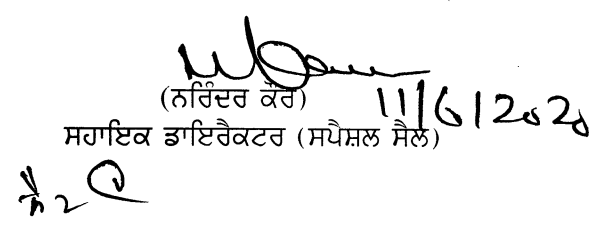 (ਨਰਿੰਦਰ ਕੌਰ)
11/6/2020
ਸਹਾਇਕ ਡਾਇਰੈਕਟਰ (ਸਪੈਸ਼ਲ ਸੈਲ)